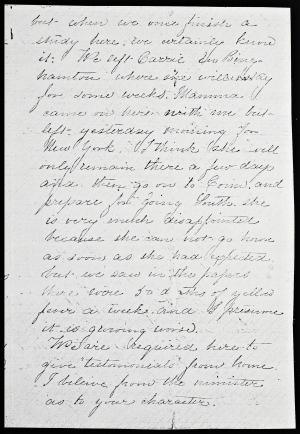 but when we once finish a
study here, we certainly know
it. We left Carrie in Bing-
hamton where she will stay
for some weeks. Mamma
came on here with me but
left yesterday morning for
New York. I think she will
only remain there a few days
and then go on to Conn, and
prepare for going South. she
is very much disappointed
because she can not go home
as soon as she had expected
but we saw in the papers
there were deaths of yellow
fever a week and I presume
it is growing worse.
We are required here to
give testimonials from home
I believe from the minister
as to your character.